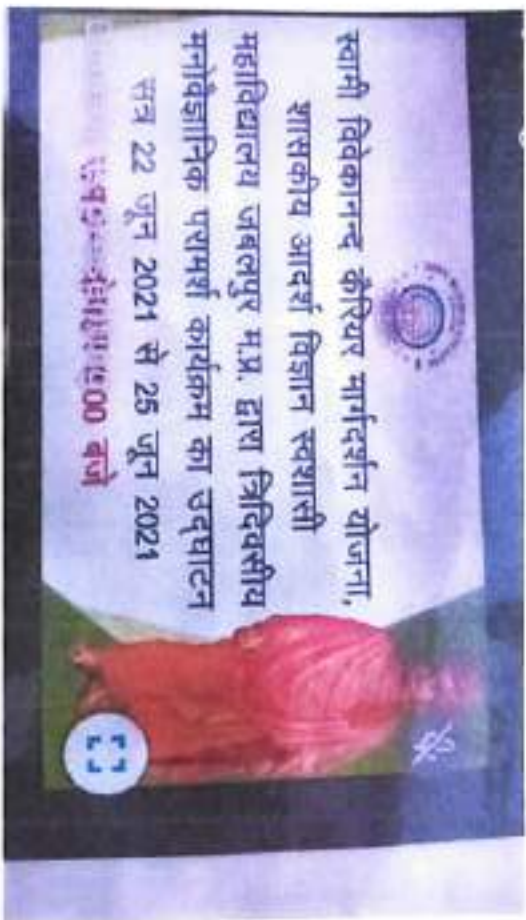 स्वामी विवेकानन्द कैरियर मार्गदर्शन योजना,
शासकीय आदर्श विज्ञान स्वशासी
महाविद्यालय जबलपुर म.प्र. द्वारा त्रिदिवसीय
मनोवैज्ञानिक परामर्श कार्यक्रम का उद्घाटन
सत्र 22 जून 2021 से 25 जून 2021
00 बजे